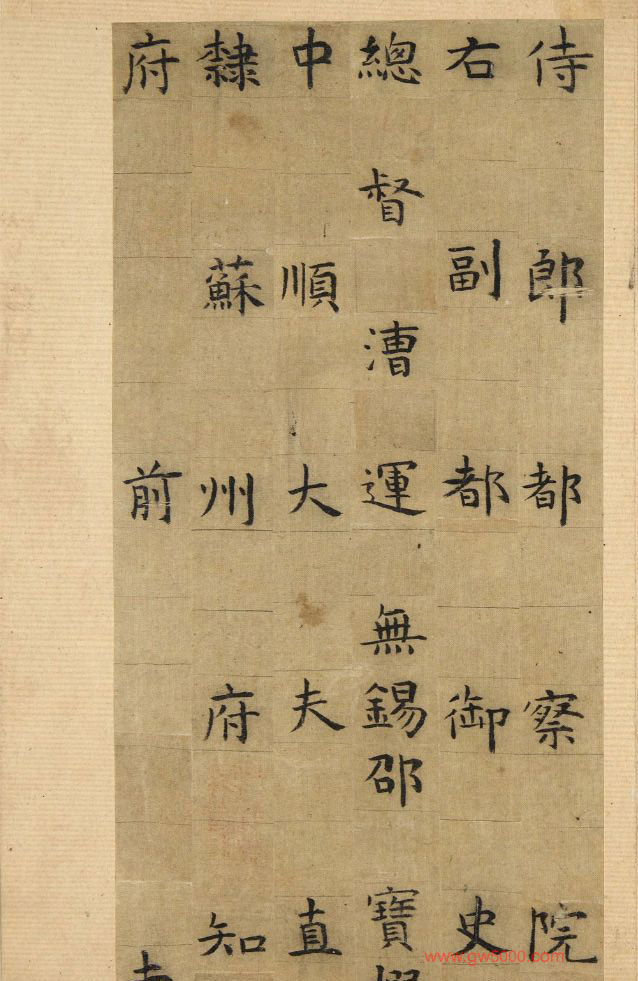 侍郎都察院
右副都御史
總督漕運無錫邵寶
中順大夫直
隸蘇州府知
府前
www.gw5000.com